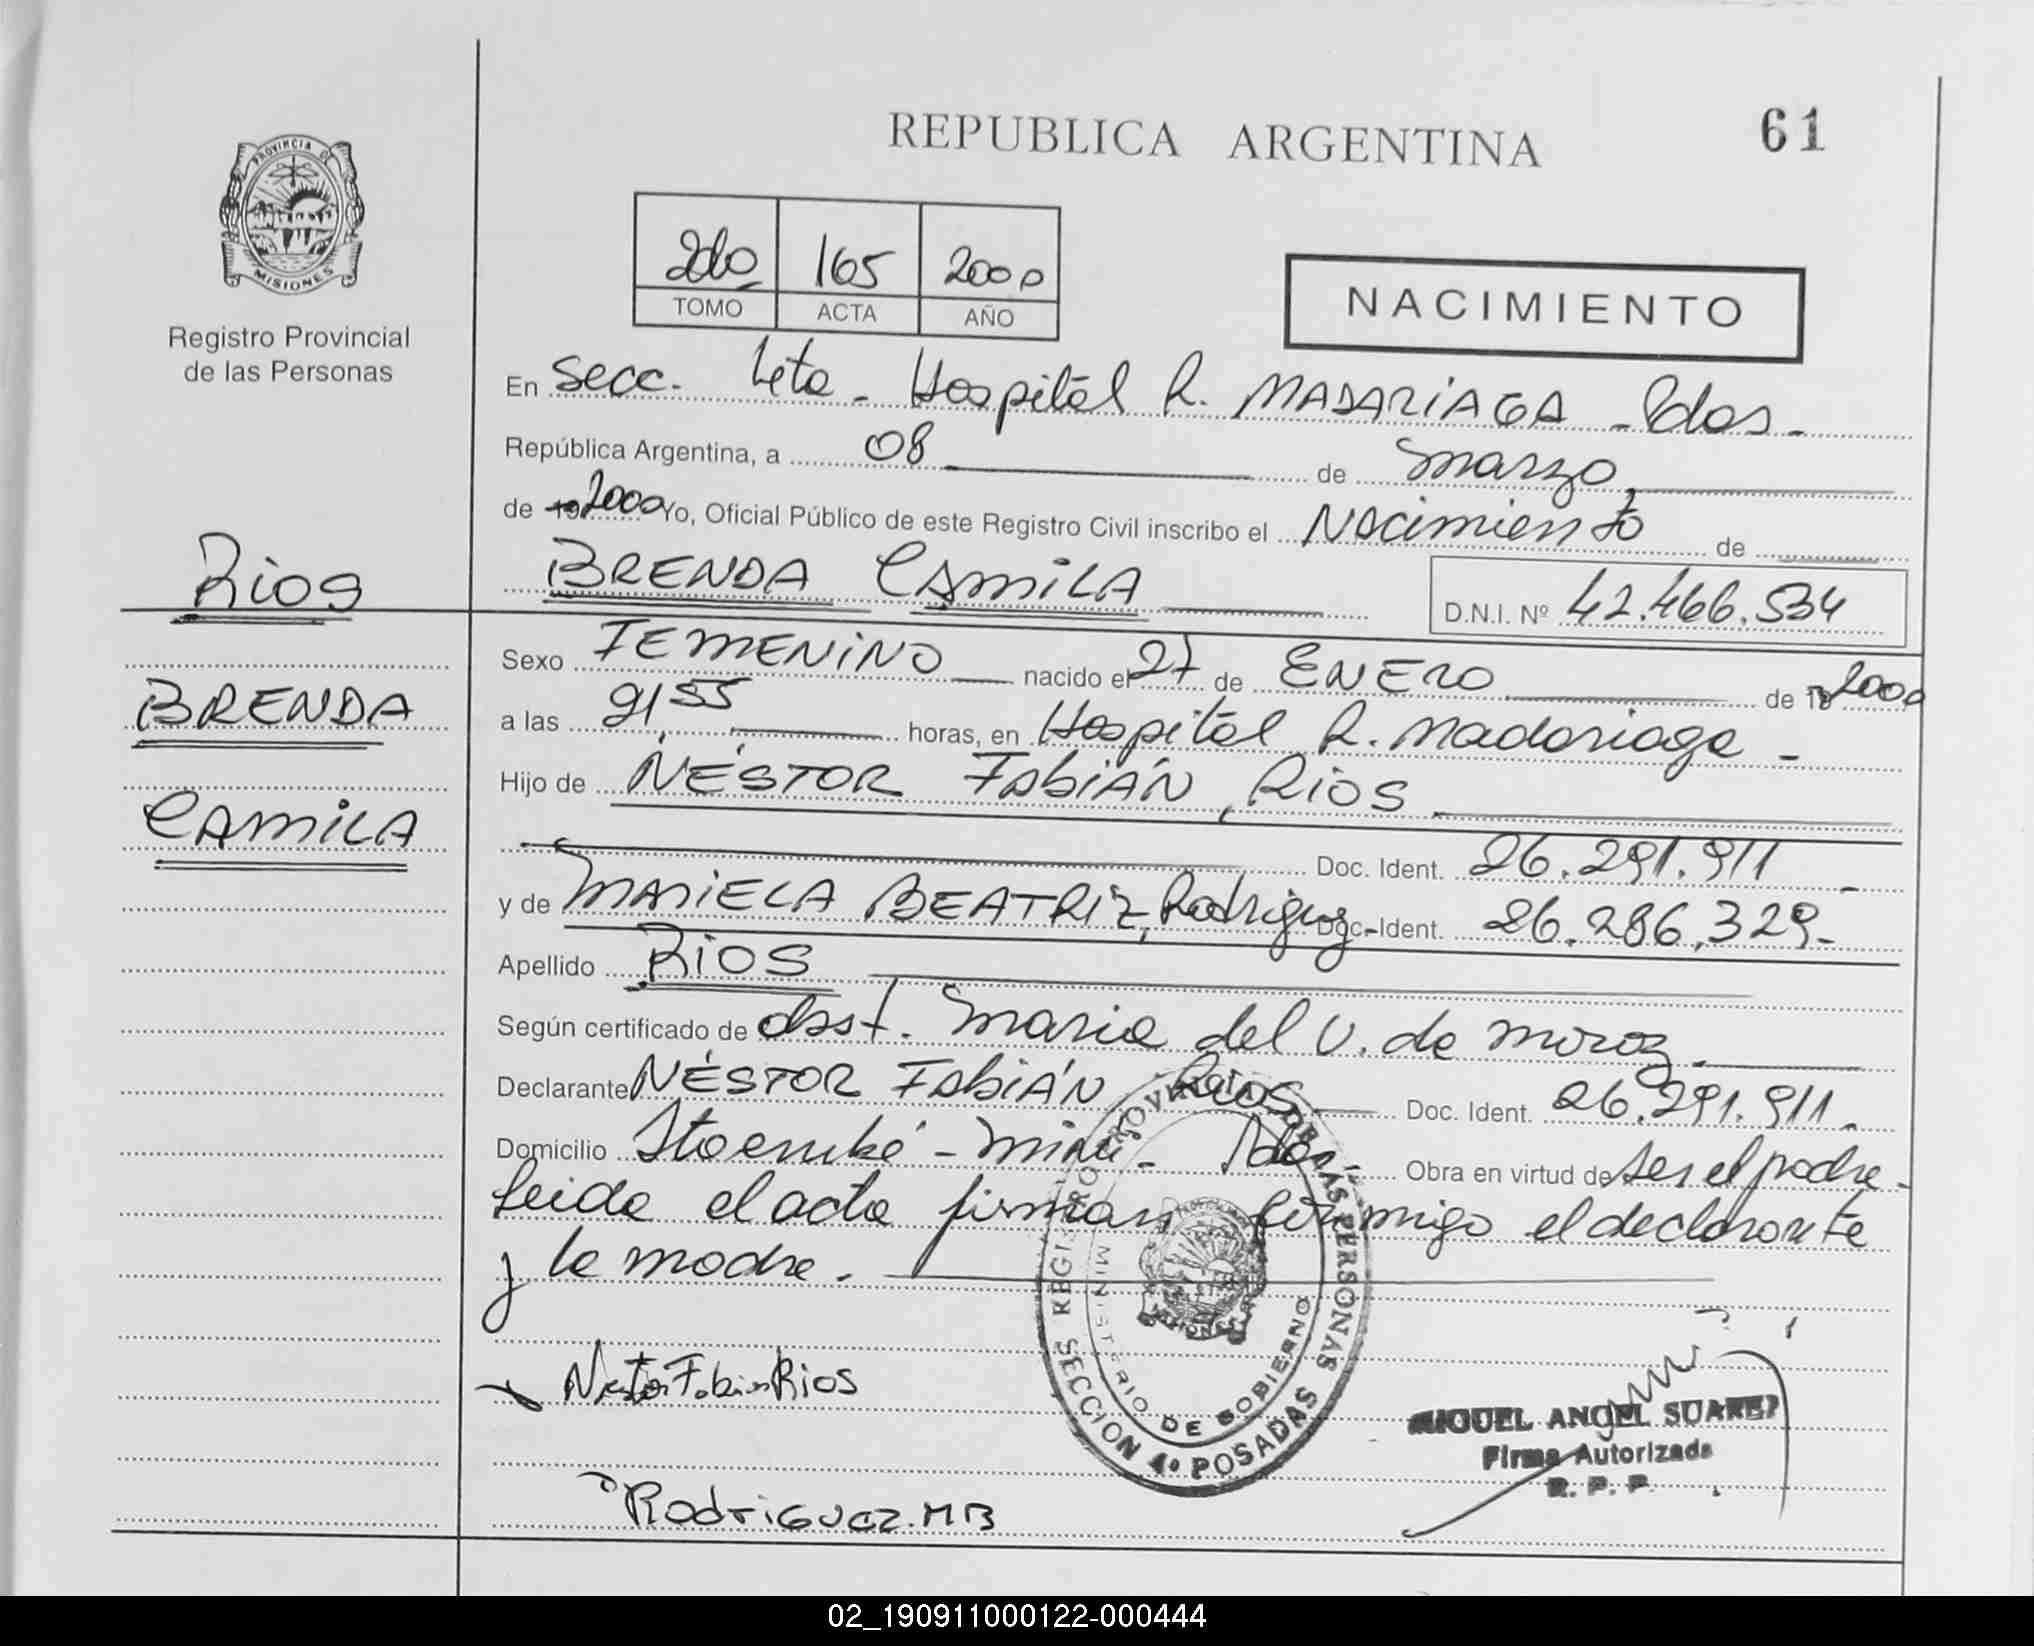 REPUBLICA ARGENTINA
61
PROVINCIA DE
MISIONES
Registro Provincial
de las Personas
2do 165 2000
TOMO ACTA AÑO
NACIMIENTO
En Secc. 4ta - Hospital R. MADARIAGA - Pdas -
República Argentina, a 08 de Marzo,
de 19 2000 Yo, Oficial Público de este Registro Civil inscribo el Nacimiento de
BRENDA CAMILA
D.N.I. Nº 42.466.534
Rios
BRENDA
CAMILA
Sexo FEMENINO nacido el 27 de ENERO de 19 2000
a las 9,55 horas, en Hospital R. Madariaga -
Hijo de NÉSTOR FABIÁN, RIOS
Doc. Ident. 26.291.911 -
y de MARIELA BEATRIZ, Rodriguez - Doc. Ident. 26.286.329 -
Apellido RIOS
Según certificado de obst. Maria del V. de Moroz.
Declarante NÉSTOR FABIÁN RIOS Doc. Ident. 26.291.911 -
Domicilio - Miní - Pdas Obra en virtud de ser el padre -
Leida el acta firman conmigo el declarante
y la madre.
Nestor Fabian Rios
Rodriguez. MB
REGISTRO PROVINCIAL DE LAS PERSONAS
MINISTERIO DE GOBIERNO
MISIONES
SECCION 4ª POSADAS
MIGUEL ANGEL SUAREZ
Firma Autorizada
R. P. P.
02_190911000122-000444